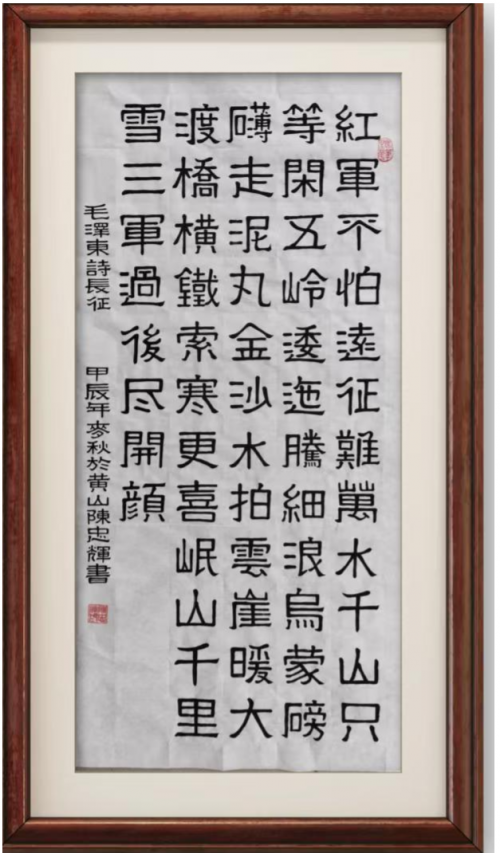 紅軍不怕遠征難萬水千山只
等閑五岭逶迤騰細浪烏蒙磅
礴走泥丸金沙水拍雲崖暖大
渡橋橫鐵索寒更喜岷山千里
雪三軍過後尽開顔
毛澤東詩長征 甲辰年麥秋於黄山陳忠輝書